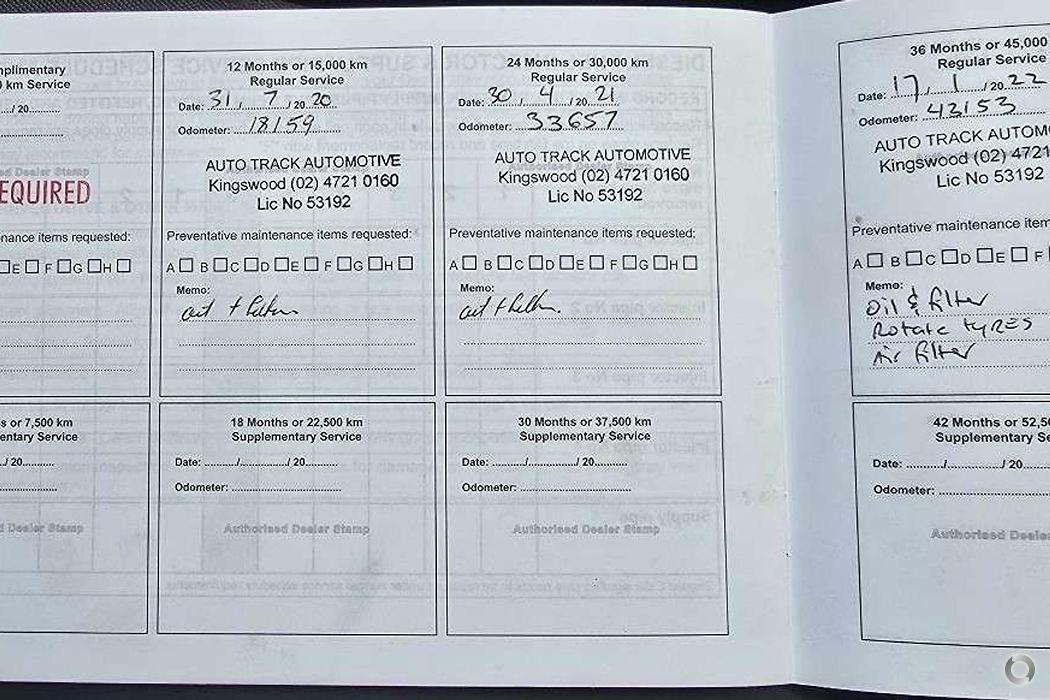 mplimentary
0 km Service
/ 20
EQUIRED
nance items requested:
E F G H
12 Months or 15,000 km
Regular Service
Date: 31 / 7 / 20 20
Odometer: 18159
AUTO TRACK AUTOMOTIVE
Kingswood (02) 4721 0160
Lic No 53192
Preventative maintenance items requested:
A B C D E F G H
Memo:
24 Months or 30,000 km
Regular Service
Date: 30 / 4 / 20 21
Odometer: 33657
AUTO TRACK AUTOMOTIVE
Kingswood (02) 4721 0160
Lic No 53192
Preventative maintenance items requested:
A B C D E F G H
Memo:
36 Months or 45,000
Regular Service
Date: 17 / 1 / 20 22
Odometer: 42153
AUTO TRACK AUTOMO
Kingswood (02) 4721
Lic No 53192
Preventative maintenance item
A B C D E F
Memo:
Oil & filter
Rotate tyres
Air filter
s or 7,500 km
entary Service
/ 20
d Dealer Stamp
18 Months or 22,500 km
Supplementary Service
Date: / / 20
Odometer:
Authorised Dealer Stamp
30 Months or 37,500 km
Supplementary Service
Date: / / 20
Odometer:
Authorised Dealer Stamp
42 Months or 52,50
Supplementary Se
Date: / / 20
Odometer:
Authorised Deale